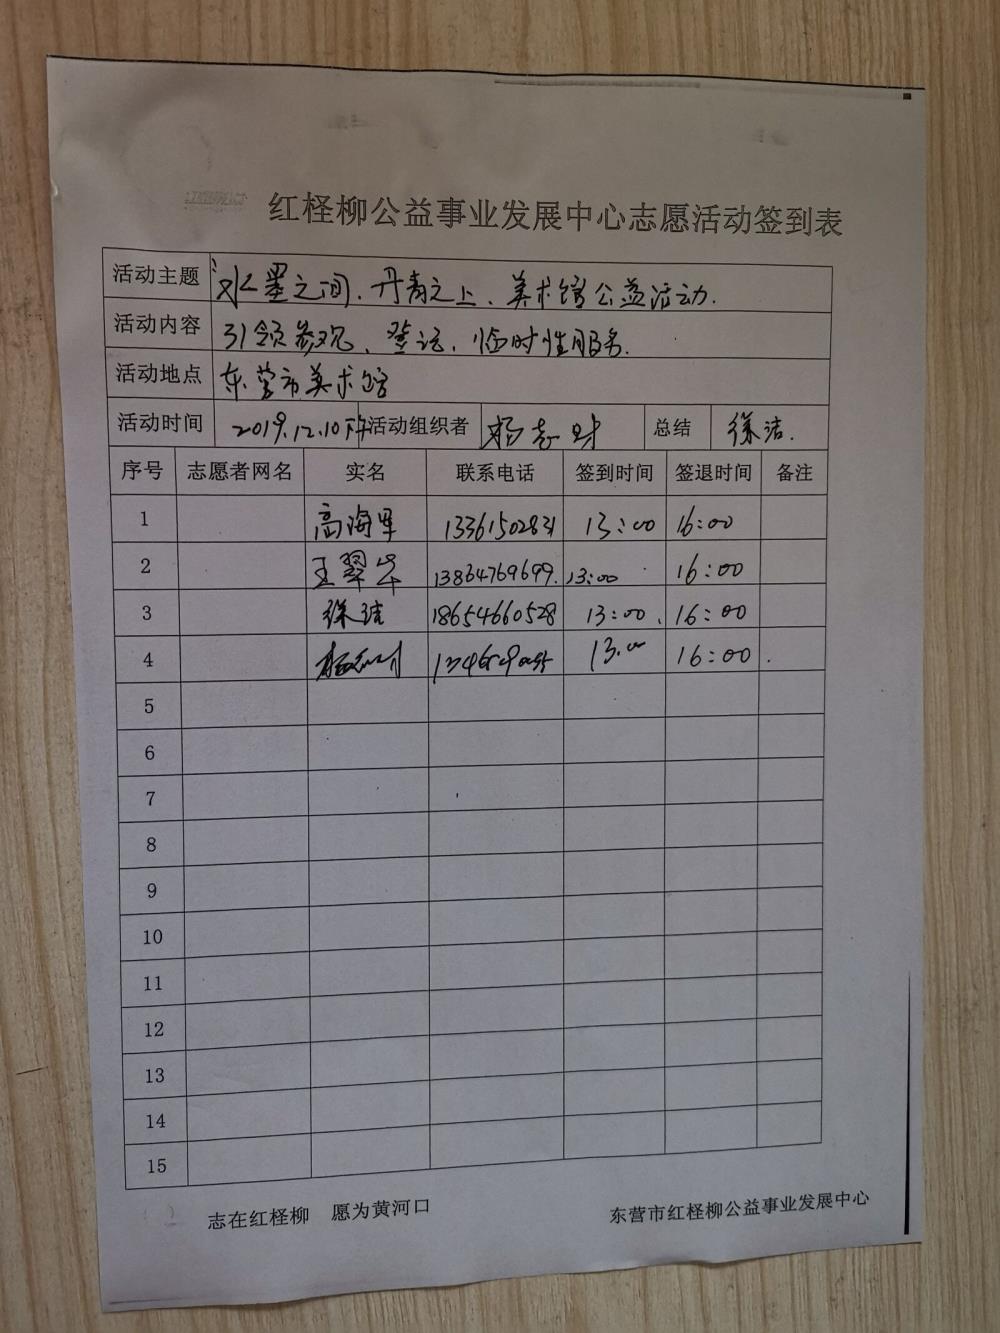 红柽柳公益事业发展中心志愿活动签到表
活动主题 水墨之间、丹青之上、美术馆公益活动.
活动内容 引领参观、登记、临时性服务.
活动地点 东营市美术馆
活动时间 2019.12.10下午 活动组织者 杨志财 总结 徐洁.
序号 志愿者网名 实名 联系电话 签到时间 签退时间 备注
1 高海军 13361502831 13:00 16:00
2 王翠华 13864769699. 13:00 16:00
3 徐洁 18654660528 13:00. 16:00
4 13:00 16:00.
5
6
7
8
9
10
11
12
13
14
15
志在红柽柳 愿为黄河口 东营市红柽柳公益事业发展中心